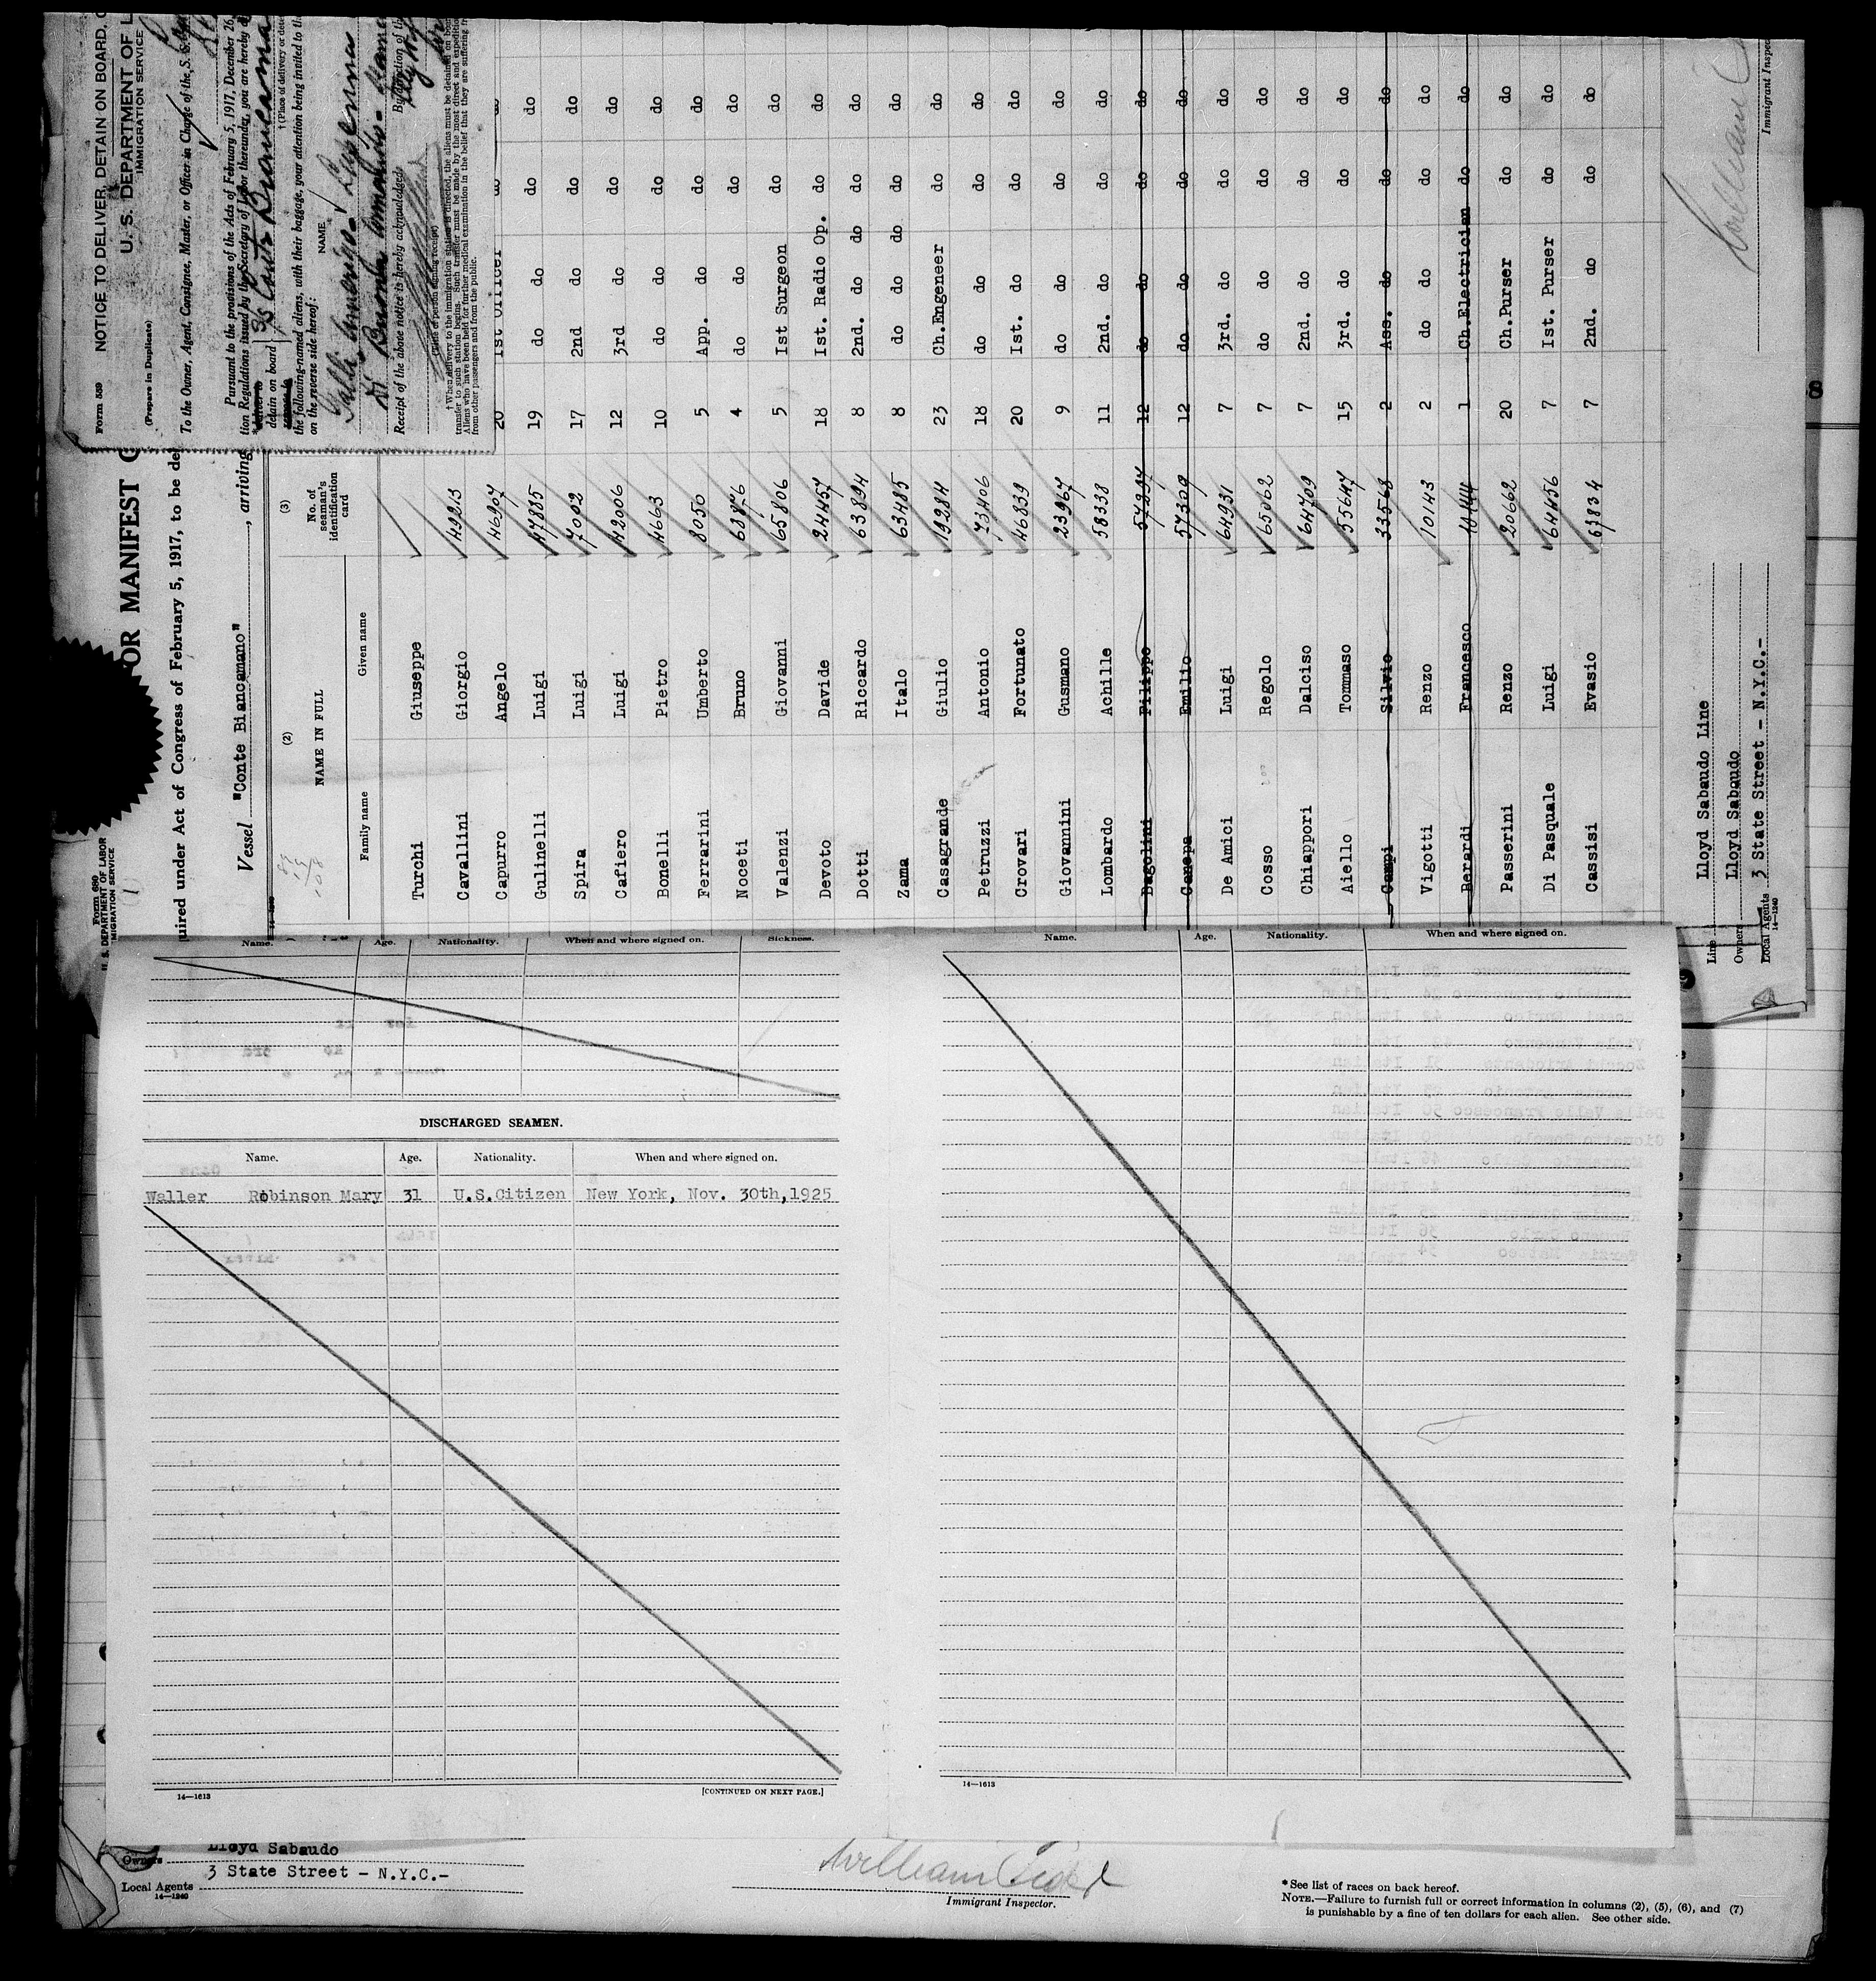 Form 559
NOTICE TO DELIVER, DETAIN ON BOARD,
U. S. DEPARTMENT OF L
IMMIGRATION SERVICE
(Prepare in Duplicate)
To the Owner, Agent, Consignee, Master, or Officer in Charge of the S. S.
Pursuant to the provisions of the Acts of February 5, 1917, December 26,
tion Regulations issued by the Secretary of Labor thereunder, you are hereby
detain on board
† (Place of delivery or
the following-named aliens, with their baggage, your attention being invited to
on the reverse side hereof:
NAME
Receipt of the above notice is hereby acknowledged:
† When delivery to the immigration station is directed, the aliens must be detained on
transfer to such station begins. Such transfer must be made by the most direct and
Aliens who have been held for further medical examination in the belief that they are suffering
from other passengers and from the public.
Form 680
U. S. DEPARTMENT OF LABOR
IMMIGRATION SERVICE
OR MANIFEST
quired under Act of Congress of February 5, 1917, to be
Vessel "Conte Biancamano", arriving
(2) (3)
NAME IN FULL No. of seaman's identification card
Family name Given name
Turchi Giuseppe
Cavallini Giorgio 49213 20 1st Officer do do
Capurro Angelo 46907 19 do do do do
Gulinelli Luigi 47885 17 2nd do do do
Spira Luigi 7002 12 3rd do do do
Cafiero Luigi 42006 10 do do do do
Bonelli Pietro 4663 5 App. do do do
Ferrarini Umberto 8050 4 do do do do
Noceti Bruno 68876 5 1st Surgeon do do
Valenzi Giovanni 65806 18 1st. Radio Op. do do
Devoto Davide 24457 8 2nd. do do do do
Dotti Riccardo 63894 8 do do do do do
Zama Italo 63485 23 Ch.Engeneer do do
Casagrande Giulio 19284 18 do do do do
Petruzzi Antonio 73406 20 1st. do do do
Crovari Fortunato 46839 9 do do do do
Giovannini Gusmano 23967 11 2nd. do do do
Lombardo Achille 58338 12 do do do do
Dagolini Filippo 57297 12 do do do do
Canepa Emilio 57309 7 3rd. do do do
De Amici Luigi 64931 7 do do do do
Cosso Regolo 65062 7 2nd. do do do
Chiappori Dalciso 64709 15 3rd. do do do
Aiello Tommaso 55647 2 Ass. do do do
Campi Silvio 33568 2 do do do do
Vigotti Renzo 10143 1 Ch.Electrician do do
Berardi Francesco 20 Ch.Purser do do
Passerini Renzo 20662 7 1st. Purser do do
Di Pasquale Luigi 64456 7 2nd. do do do
Cassisi Evasio 63834
Line Lloyd Sabaudo Line
Owners Lloyd Sabaudo
Local Agents 3 State Street - N.Y.C.-
14—1240
Immigrant Inspec
Name. Age. Nationality. When and where signed on. Sickness.
DISCHARGED SEAMEN.
Name. Age. Nationality. When and where signed on.
Waller Robinson Mary 31 U.S.Citizen New York, Nov. 30th,1925
14—1613
[CONTINUED ON NEXT PAGE.]
Name. Age. Nationality. When and where signed on.
14—1613
Owners Lloyd Sabaudo
Local Agents 3 State Street - N.Y.C.-
14—1240
William
Immigrant Inspector.
* See list of races on back hereof.
NOTE.—Failure to furnish full or correct information in columns (2), (5), (6), and (7)
is punishable by a fine of ten dollars for each alien. See other side.